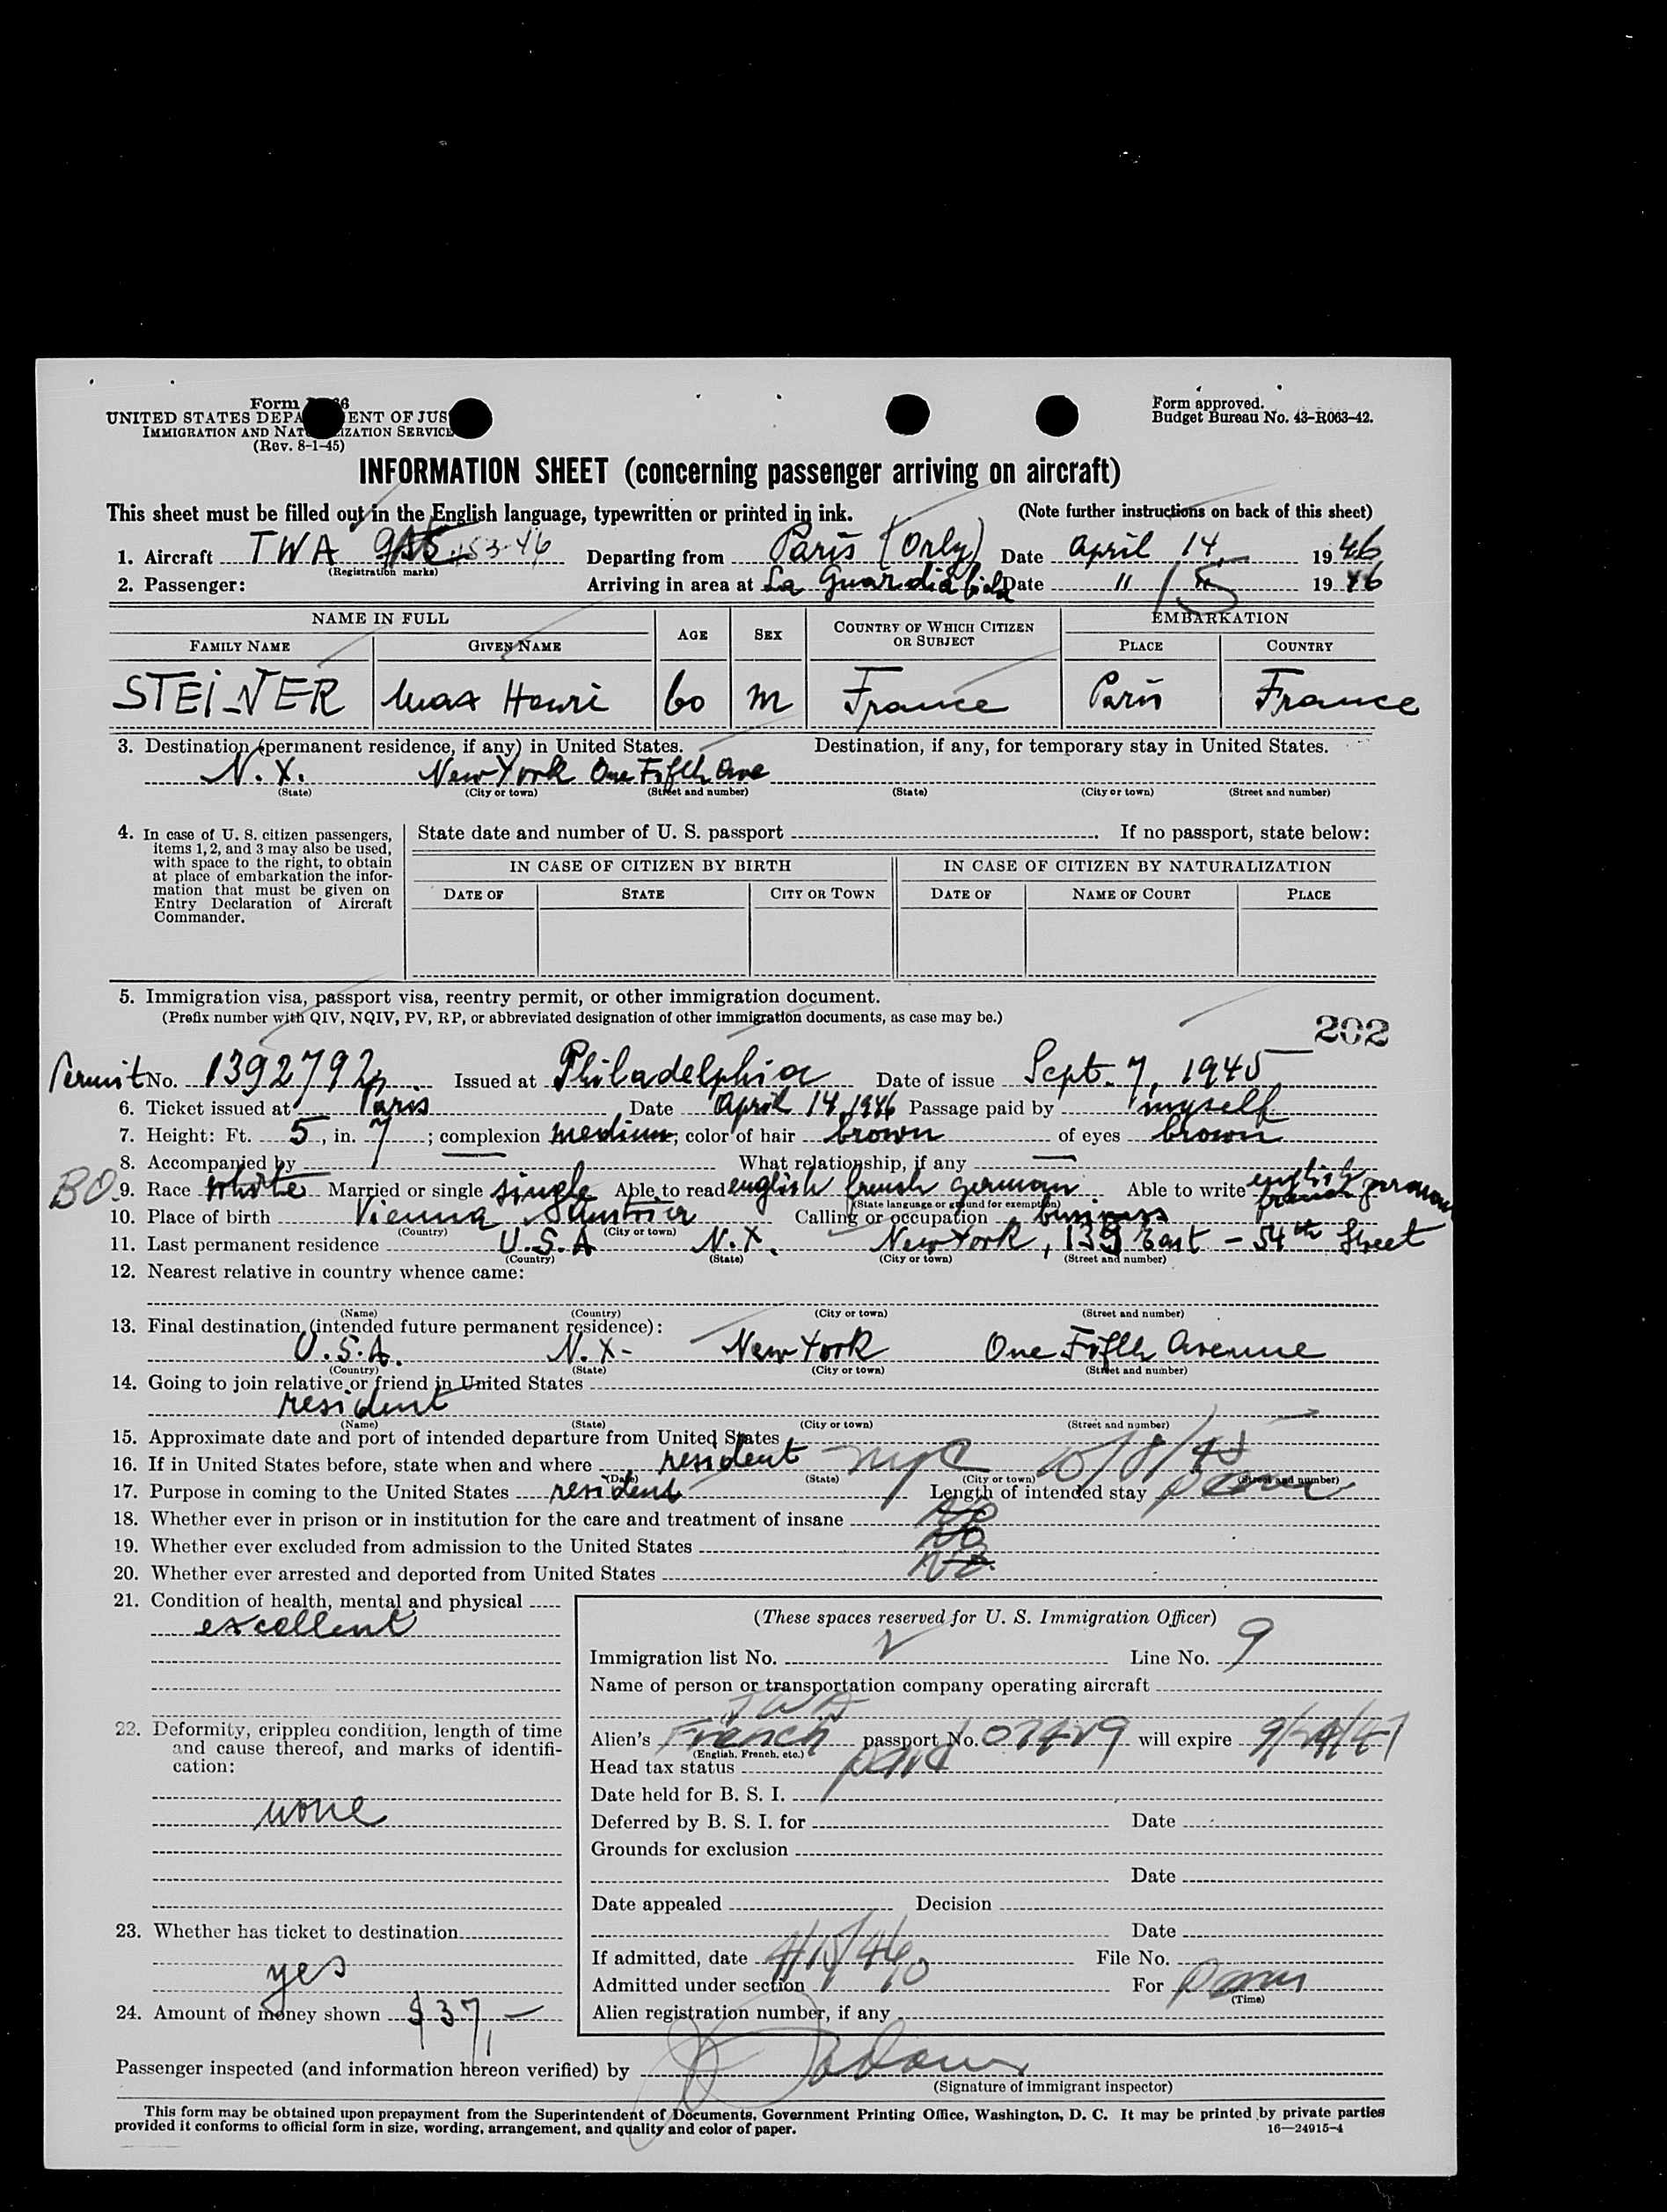 Form 66
UNITED STATES DEPA ENT OF JUS
IMMIGRATION AND NAT IZATION SERVICE
(Rev. 8-1-45)
Form approved.
Budget Bureau No. 43-R063-42.
INFORMATION SHEET (concerning passenger arriving on aircraft)
This sheet must be filled out in the English language, typewritten or printed in ink. (Note further instructions on back of this sheet)
1. Aircraft TWA 953-46 Departing from Paris (Orly) Date April 14 1946
(Registration marks)
2. Passenger: Arriving in area at La Guardia field Date " 15 1946
NAME IN FULL AGE SEX COUNTRY OF WHICH CITIZEN OR SUBJECT EMBARKATION
FAMILY NAME GIVEN NAME PLACE COUNTRY
STEINER Max Henri 60 M France Paris France
3. Destination (permanent residence, if any) in United States. Destination, if any, for temporary stay in United States.
N.Y. New York One Fifth Ave
(State) (City or town) (Street and number) (State) (City or town) (Street and number)
4. In case of U. S. citizen passengers, items 1, 2, and 3 may also be used, with space to the right, to obtain at place of embarkation the information that must be given on Entry Declaration of Aircraft Commander.
State date and number of U. S. passport . If no passport, state below:
IN CASE OF CITIZEN BY BIRTH IN CASE OF CITIZEN BY NATURALIZATION
DATE OF STATE CITY OR TOWN DATE OF NAME OF COURT PLACE
5. Immigration visa, passport visa, reentry permit, or other immigration document.
(Prefix number with QIV, NQIV, PV, RP, or abbreviated designation of other immigration documents, as case may be.)
202
Permit No. 1392792 Issued at Philadelphia Date of issue Sept. 7, 1945
6. Ticket issued at Paris Date April 14 1946 Passage paid by myself
7. Height: Ft. 5, in. 7; complexion medium; color of hair brown of eyes brown
8. Accompanied by — What relationship, if any —
BO 9. Race white Married or single single Able to read english french german. Able to write english french german
(State language or ground for exemption)
10. Place of birth Vienna Austria Calling or occupation business
(Country) (City or town)
11. Last permanent residence U.S.A N.Y. New York, 139 East - 54th Street
(Country) (State) (City or town) (Street and number)
12. Nearest relative in country whence came:
(Name) (Country) (City or town) (Street and number)
13. Final destination (intended future permanent residence):
U.S.A. N.Y- New York One Fifth Avenue
(Country) (State) (City or town) (Street and number)
14. Going to join relative or friend in United States
resident
(Name) (State) (City or town) (Street and number)
15. Approximate date and port of intended departure from United States
16. If in United States before, state when and where resident NYC 10/8/45
(Date) (State) (City or town) (Street and number)
17. Purpose in coming to the United States resident Length of intended stay perm
18. Whether ever in prison or in institution for the care and treatment of insane NO
19. Whether ever excluded from admission to the United States NO
20. Whether ever arrested and deported from United States NO
21. Condition of health, mental and physical
excellent
22. Deformity, crippled condition, length of time and cause thereof, and marks of identification:
none
23. Whether has ticket to destination
yes
24. Amount of money shown $37,—
(These spaces reserved for U. S. Immigration Officer)
Immigration list No. 2 Line No. 9
Name of person or transportation company operating aircraft
TWA
Alien's French passport No. 07429 will expire 9/29/47
(English, French, etc.)
Head tax status paid
Date held for B. S. I.
Deferred by B. S. I. for Date
Grounds for exclusion
Date
Date appealed Decision
Date
If admitted, date 4/15/46 File No.
Admitted under section For Perm
(Time)
Alien registration number, if any
Passenger inspected (and information hereon verified) by
(Signature of immigrant inspector)
This form may be obtained upon prepayment from the Superintendent of Documents, Government Printing Office, Washington, D. C. It may be printed by private parties
provided it conforms to official form in size, wording, arrangement, and quality and color of paper. 16—24915-4